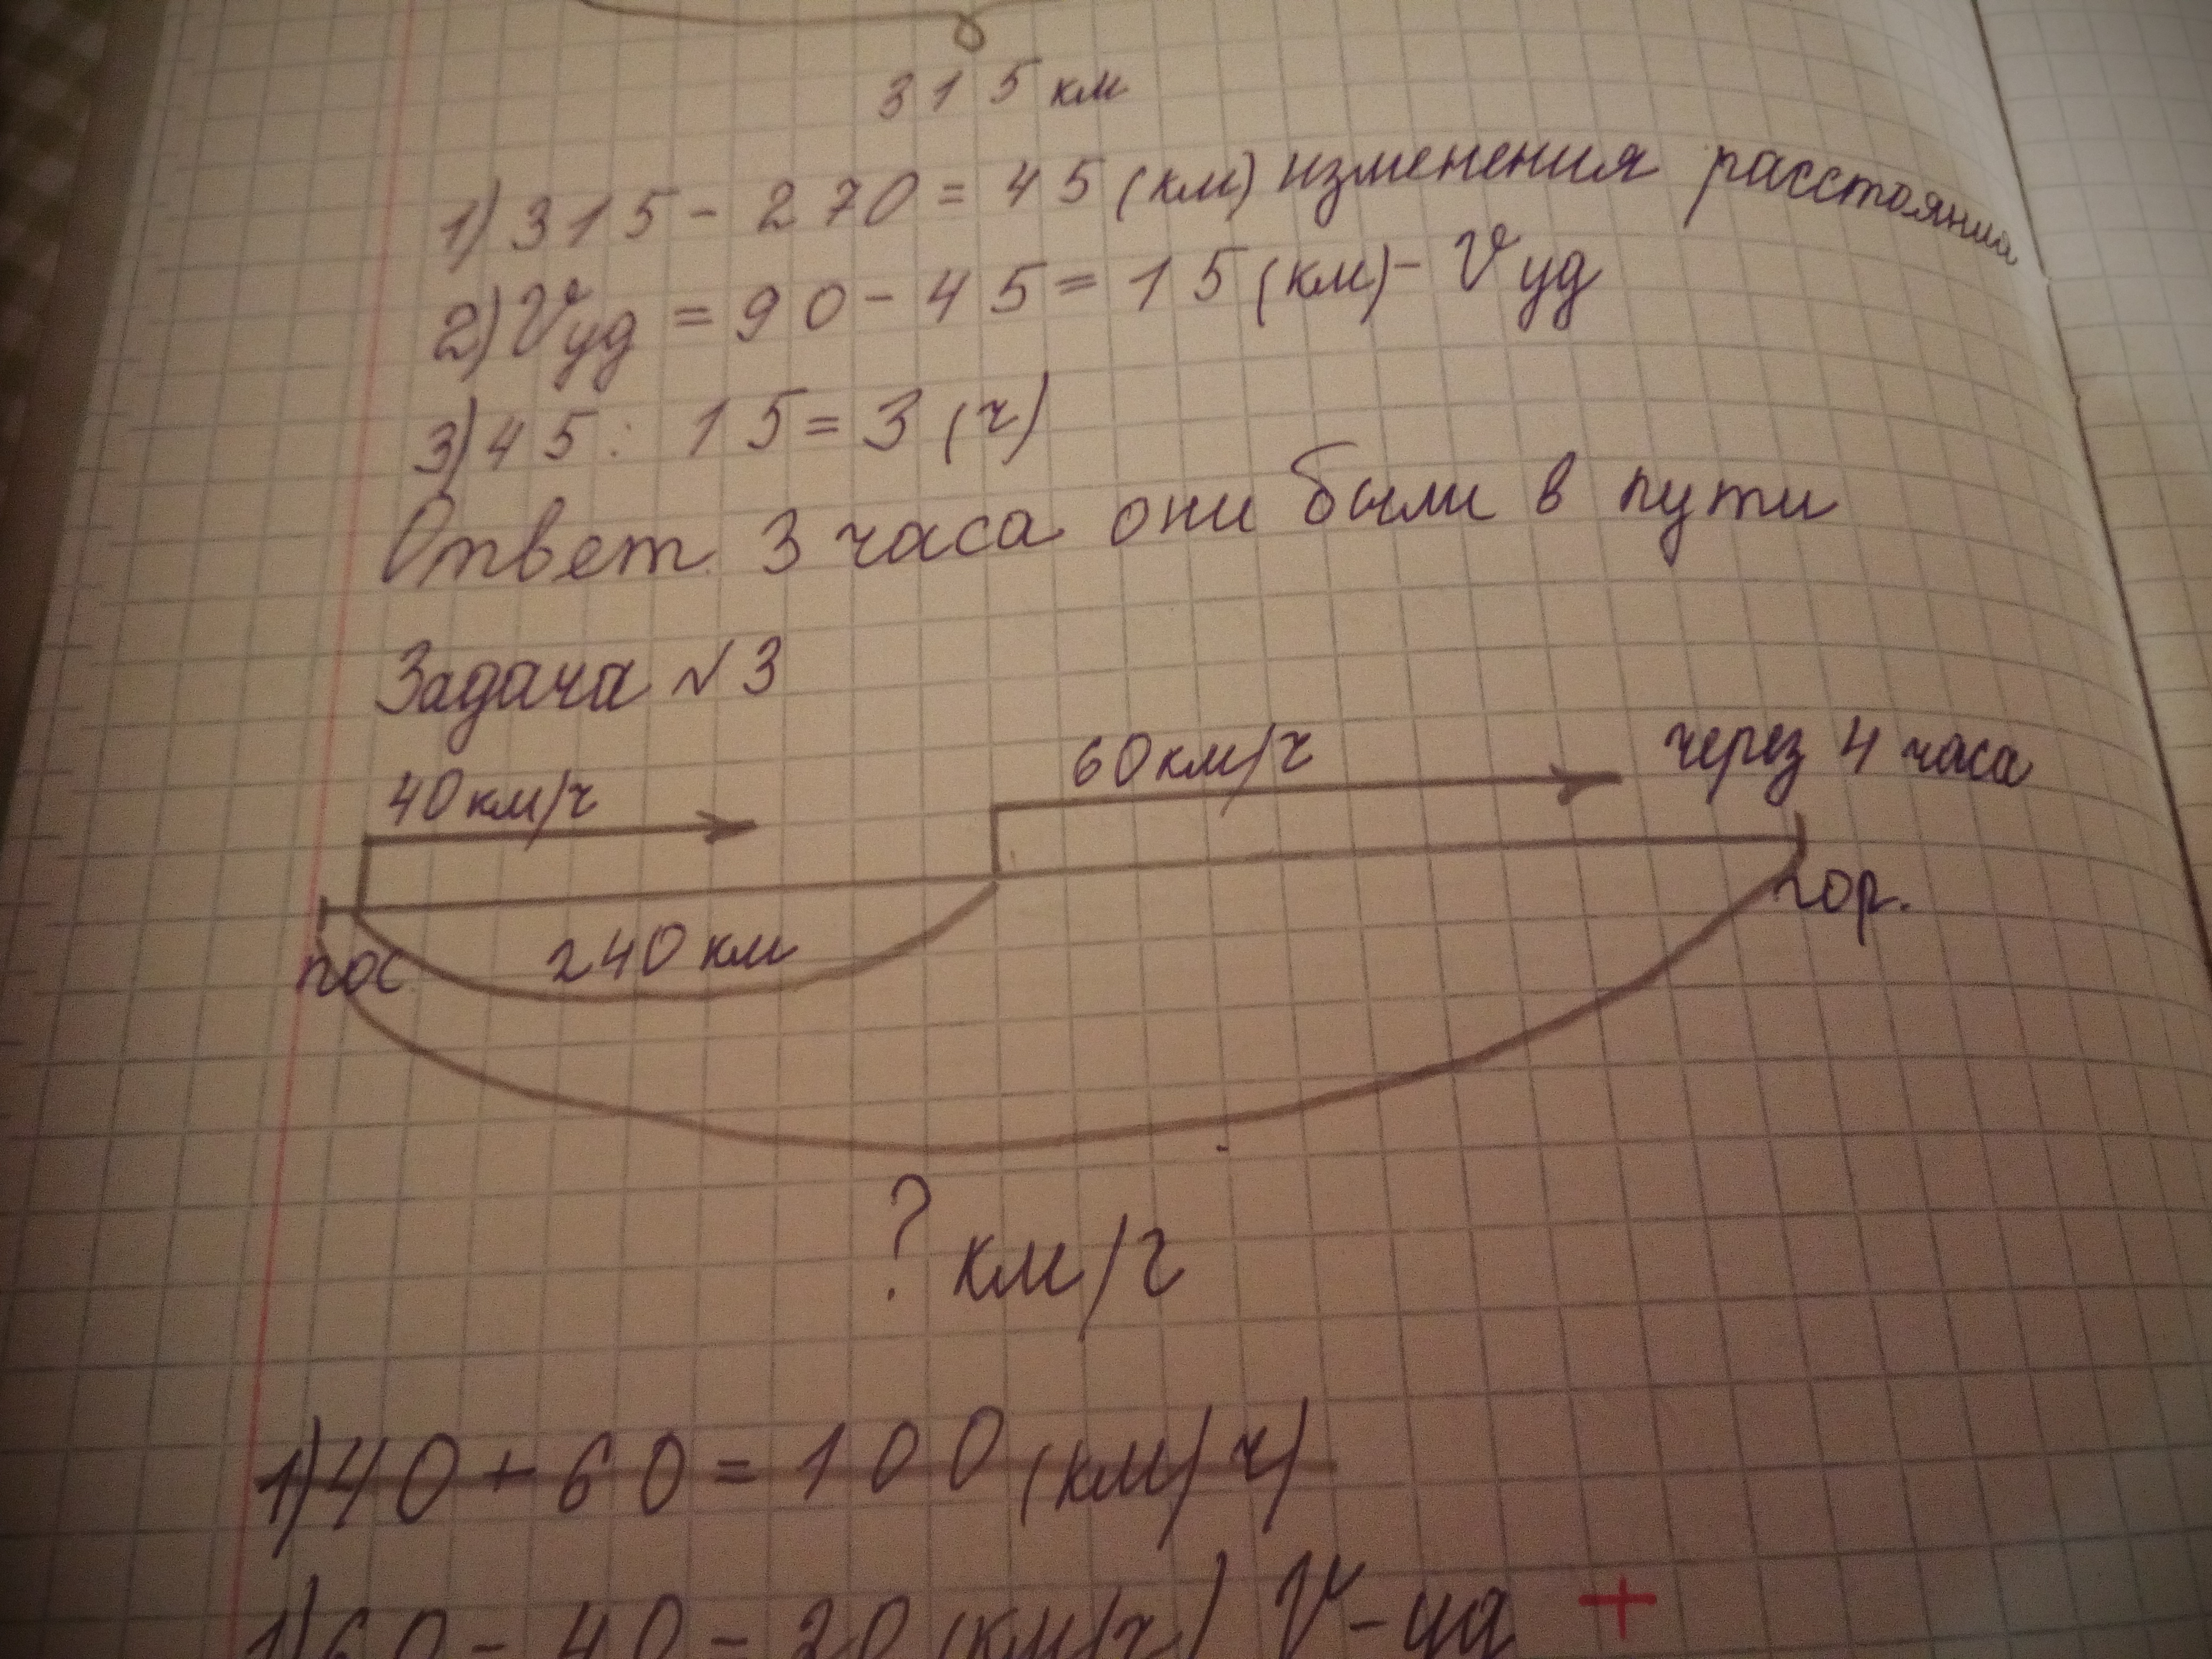 315 км
1) 315 - 270 = 45 (км) изменения расстояния
2) Vуд = 90 - 45 = 15 (км) - Vуд
3) 45 : 15 = 3 (ч)
Ответ 3 часа они были в пути
Задача №3
40 км/ч
60 км/ч
через 4 часа
пос
240 км
гор.
? км/ч
1) 40 + 60 = 100 (км/ч)
1) 60 - 40 = 20 (км/ч) V-уд +